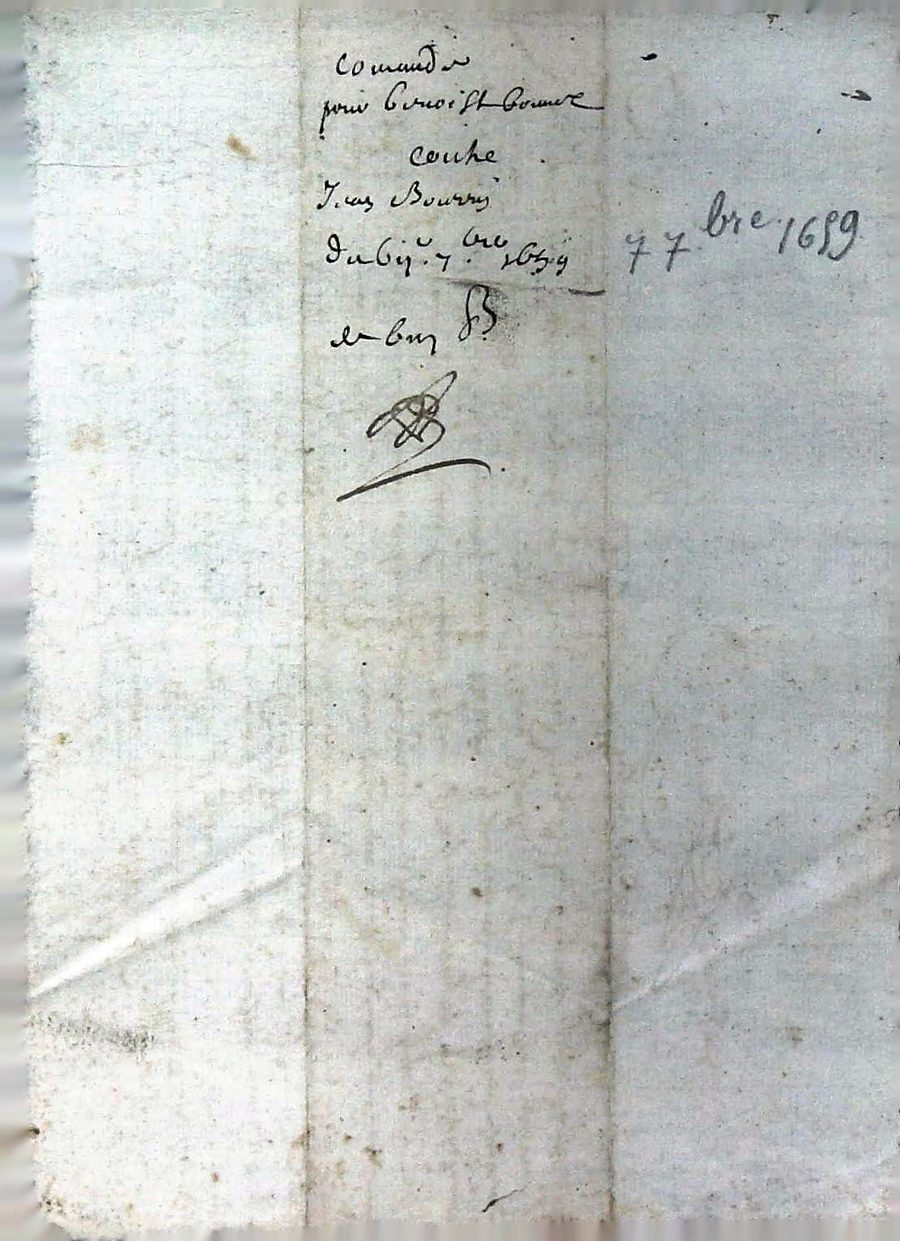 Comande
pour benoist bonnet
contre
Jean Bourry
du vije 7bre 1659
7 7bre 1659